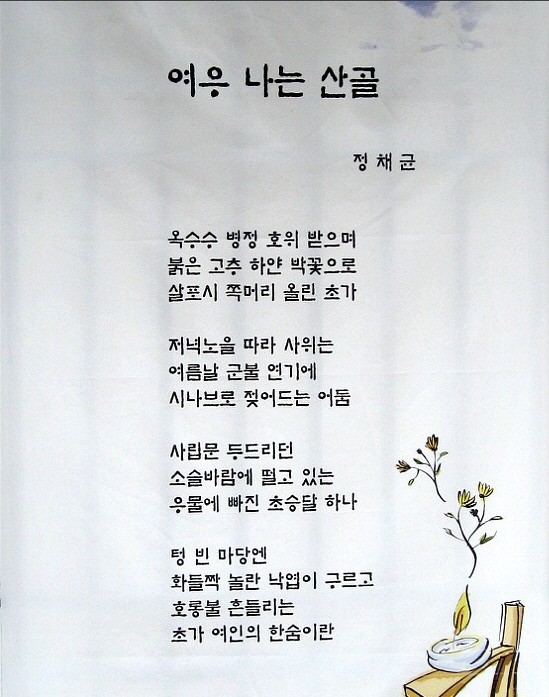 여우 나는 산골
정채균
옥수수 병정 호위 받으며
붉은 고추 하얀 박꽃으로
살포시 쪽머리 올린 초가
저녁노을 따라 사위는
여름날 군불 연기에
시나브로 젖어드는 어둠
사립문 두드리던
소슬바람에 떨고 있는
우물에 빠진 초승달 하나
텅 빈 마당엔
화들짝 놀란 낙엽이 구르고
호롱불 흔들리는
초가 여인의 한숨이란